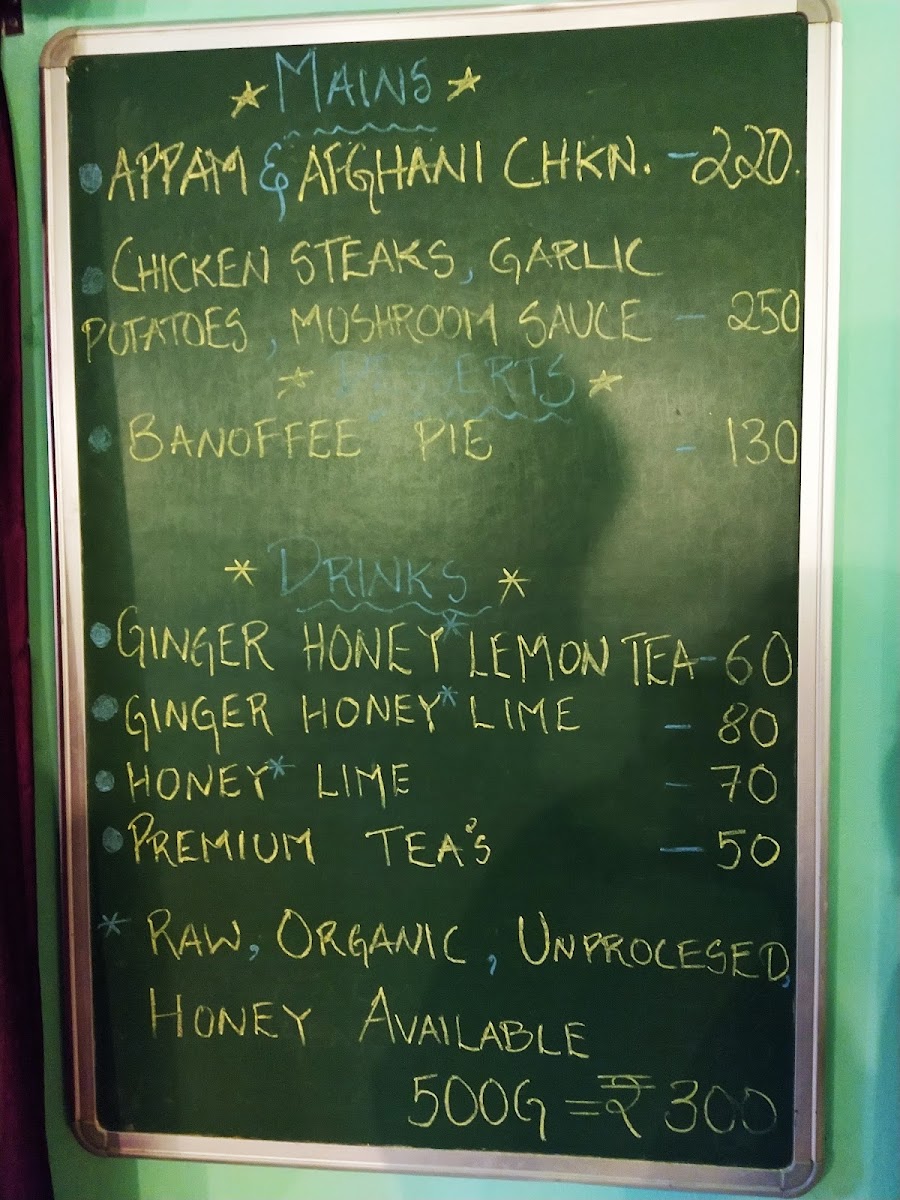 ★ MAINS ★
• APPAM & AFGHANI CHKN. - 220.
• CHICKEN STEAKS, GARLIC
POTATOES, MUSHROOM SAUCE - 250
★ DESSERTS ★
• BANOFFEE PIE - 130
* DRINKS *
• GINGER HONEY* LEMON TEA - 60
• GINGER HONEY* LIME - 80
• HONEY* LIME - 70
• PREMIUM TEA'S - 50
* RAW, ORGANIC, UNPROCESED,
HONEY AVAILABLE
500G = ₹ 300